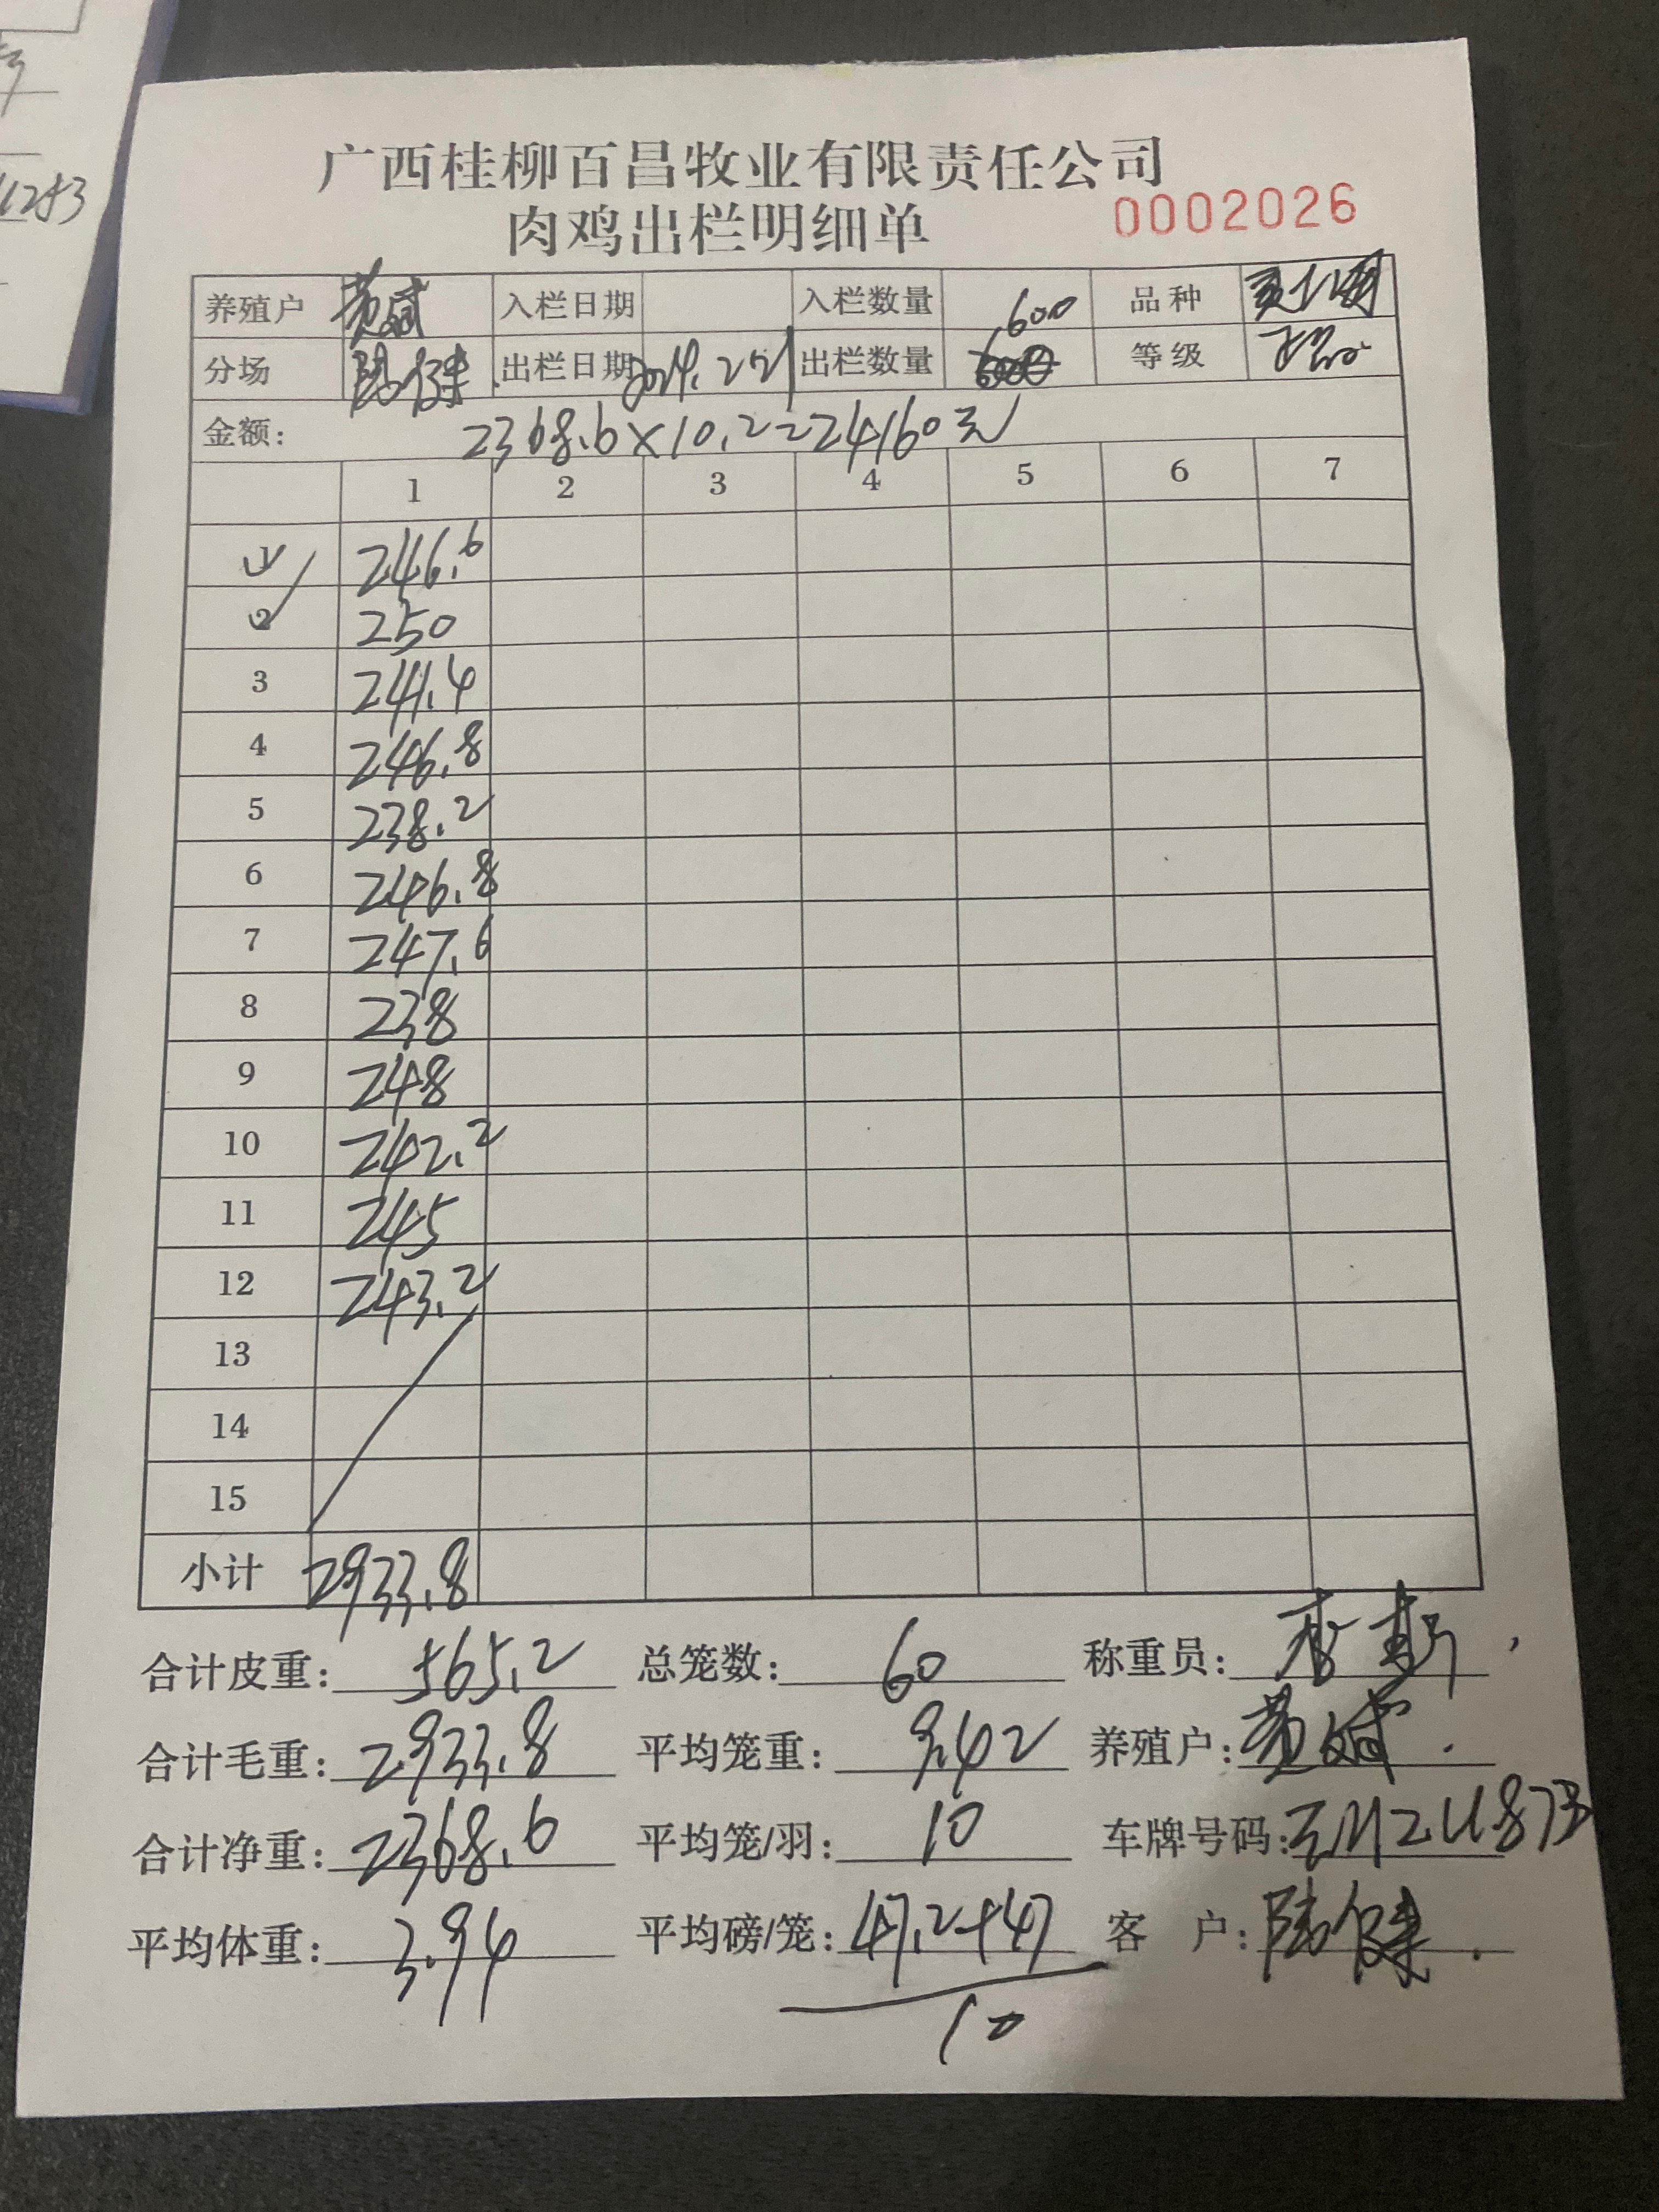 1253
广西桂柳百昌牧业有限责任公司
肉鸡出栏明细单 0002026
养殖户 黄斌 入栏日期 入栏数量 品种
分场 陆保 出栏日期 出栏数量 600 等级
金额: 2368.6×10.2=24160元
1 2 3 4 5 6 7
1 246.6
2 250
3 241.4
4 246.8
5 238.2
6 246.8
7 247.6
8 238
9 248
10 242.2
11 245
12 243.2
13
14
15
小计 2933.8
合计皮重: 565.2 总笼数: 60 称重员: 李
合计毛重: 2933.8 平均笼重: 9.42 养殖户: 黄斌
合计净重: 2368.6 平均笼/羽: 10 车牌号码:
平均体重: 3.94 平均磅/笼: 47.2+47 客 户: 陆
10